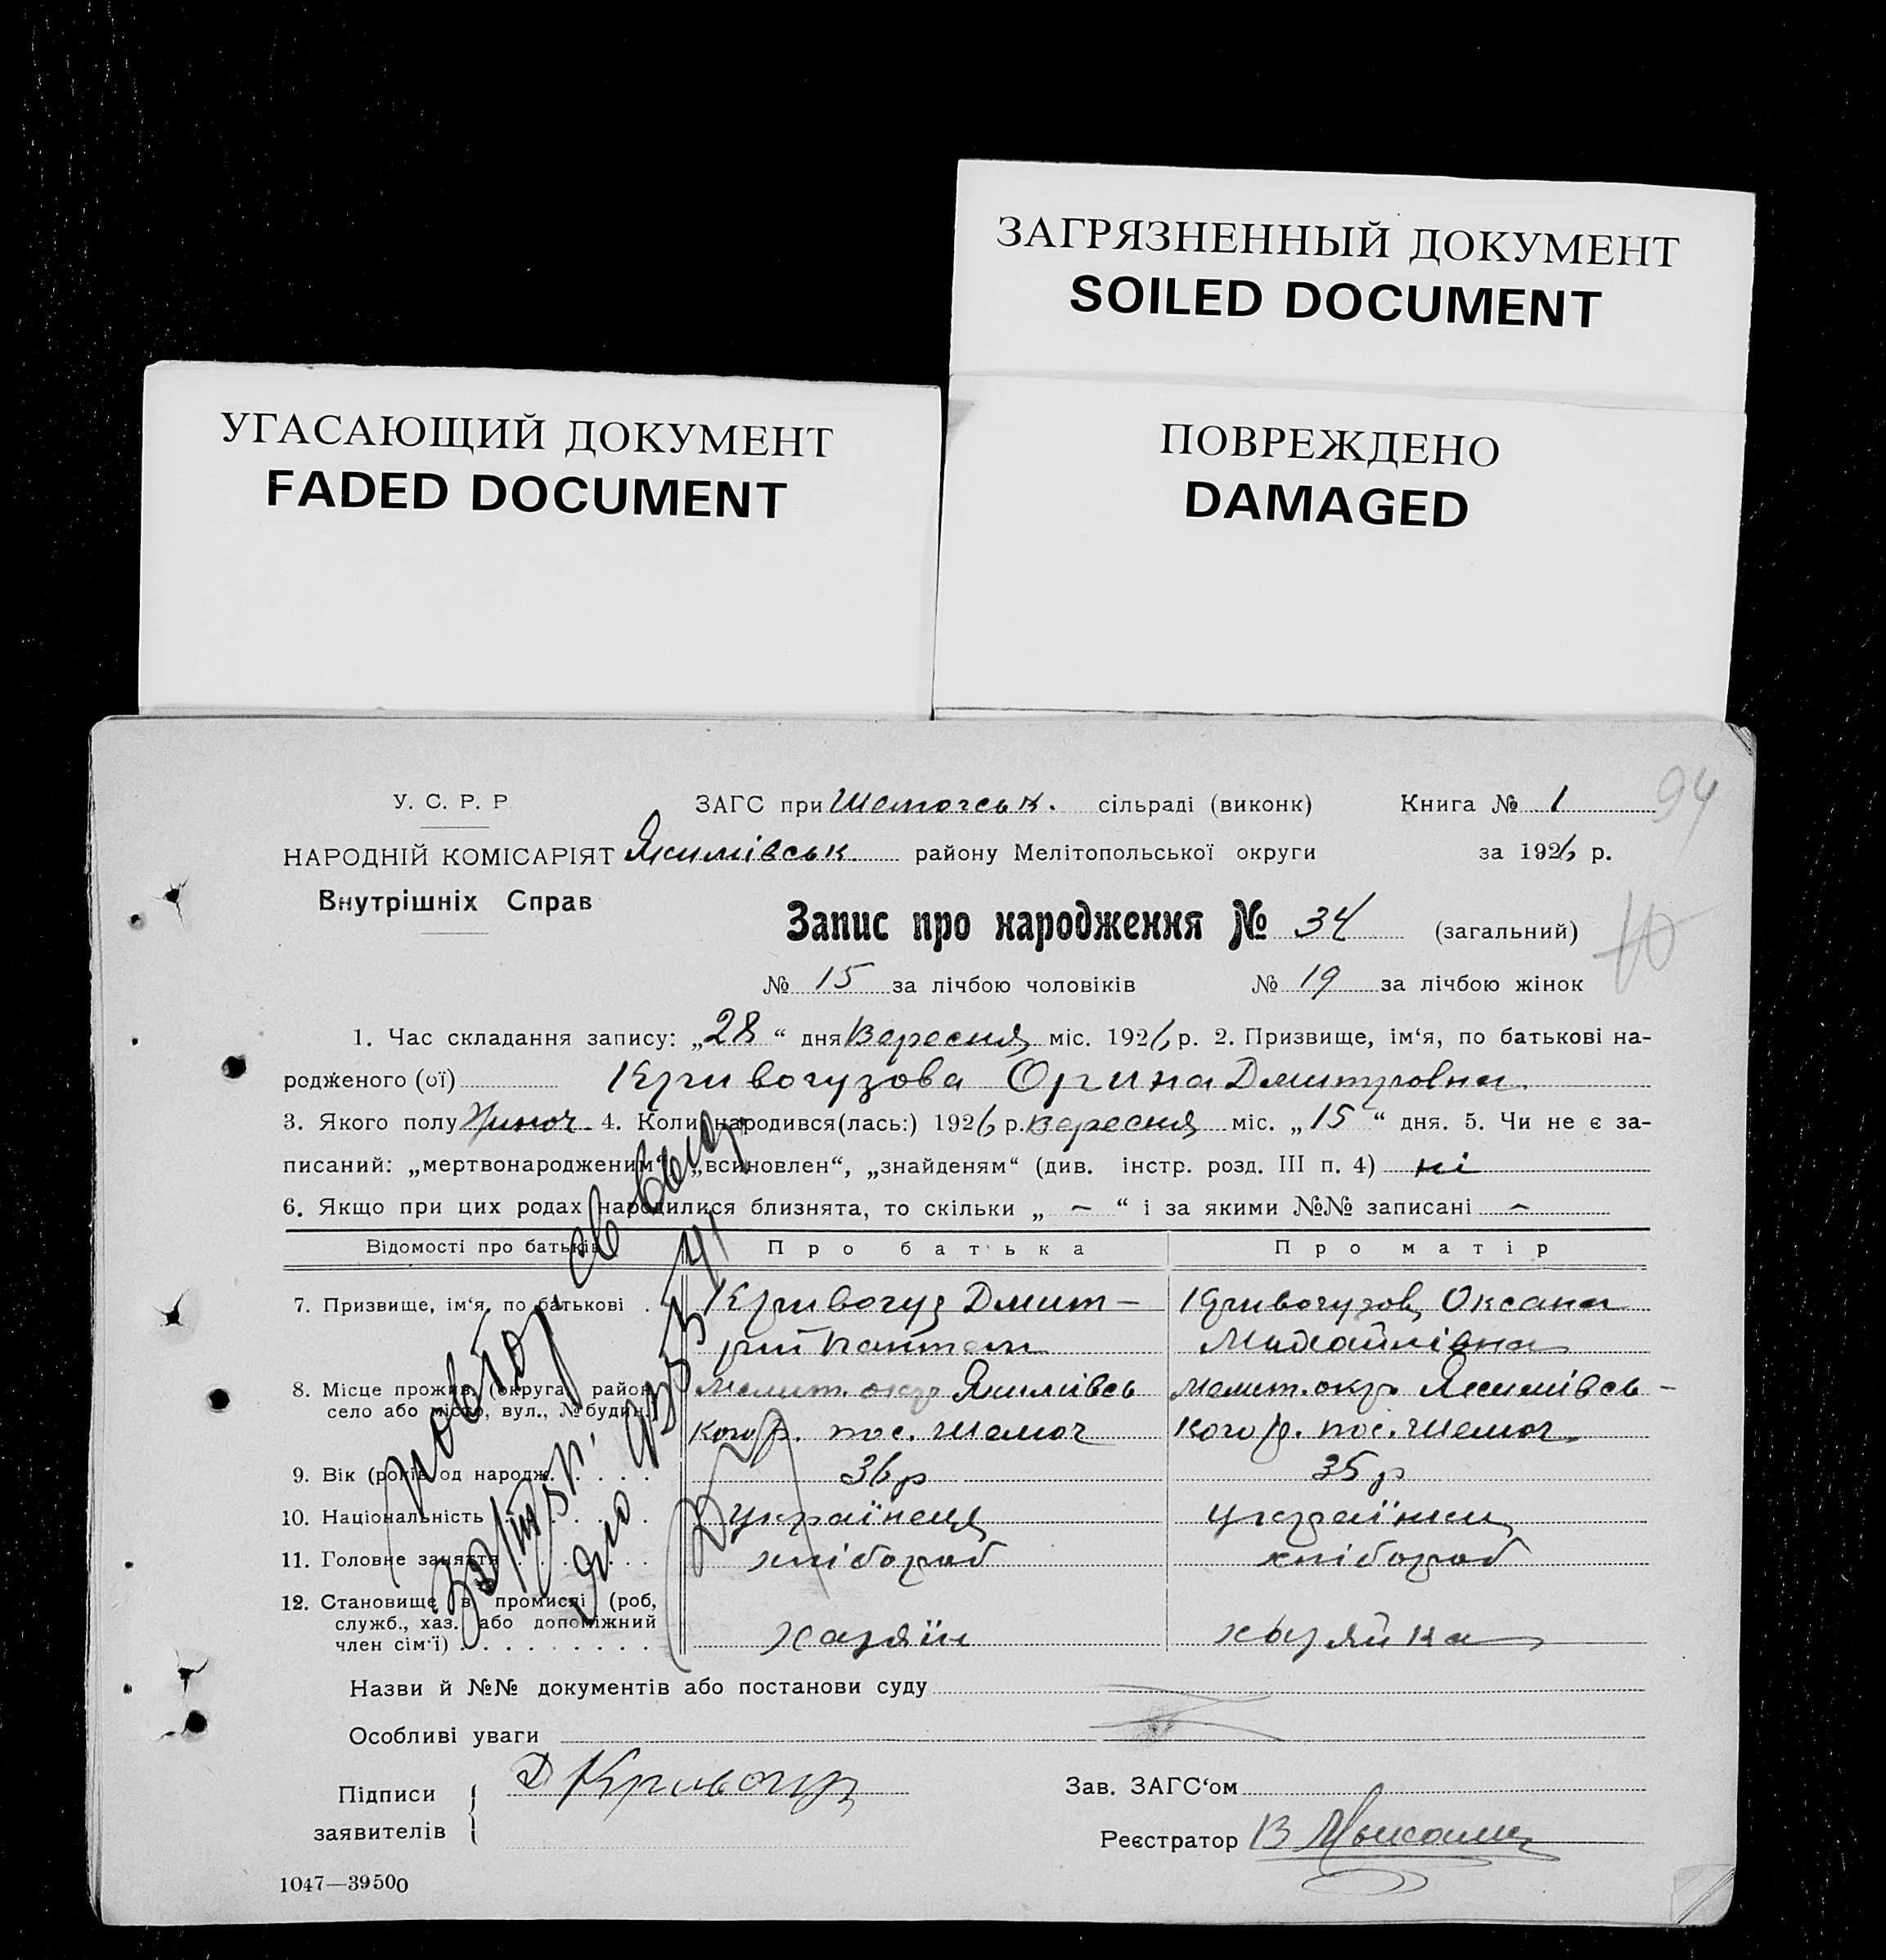 ЗАГРЯЗНЕННЫЙ ДОКУМЕНТ
SOILED DOCUMENT
УГАСАЮЩИЙ ДОКУМЕНТ
FADED DOCUMENT
ПОВРЕЖДЕНО
DAMAGED
94
У. С. Р. Р
ЗАГС при сільраді (виконк) Книга № 1
НАРОДНІЙ КОМІСАРІЯТ Якимівськ. району Мелітопольської округи за 1926 р.
Внутрішніх Справ
Запис про народження № 34 (загальний)
10
№ 15 за лічбою чоловіків № 19 за лічбою жінок
1. Час складання запису: „28“ дня Вересня міс. 1926 р. 2. Призвище, ім‘я, по батькові на-
родженого (ої) Кривогузова Орина Дмитровна
3. Якого полу Жиноч. 4. Коли народився(лась:) 1926 р. Вересня міс. „15“ дня. 5. Чи не є за-
писаний: „мертвонародженим“ „всиновлен“, „знайденям“ (див. інстр. розд. III п. 4) ні
6. Якщо при цих родах народилися близнята, то скільки „ – “ і за якими №№ записані –
Відомості про батьків Про батька Про матір
7. Призвище, ім‘я, по батькові Кривогуз Дмит- Кривогузов Оксана
рий Михайлівна
8. Місце прожив. (округа, район, Мелит. окр Якимівсь Мелит. окр. Якимівсь-
село або місто, вул., № будин. кого р. пос. кого р. пос.
9. Вік (років од народж. 36 р 35 р
10. Національність Українець Українка
11. Головне заняття хлібороб хлібороб
12. Становище в промислі (роб,
служб., хаз. або допоміжний
член сім‘ї) хазяїн хазяйка
Назви й №№ документів або постанови суду
Особливі уваги
Підписи Д Кривогуз Зав. ЗАГС‘ом
заявителів Реєстратор В
1047—39500